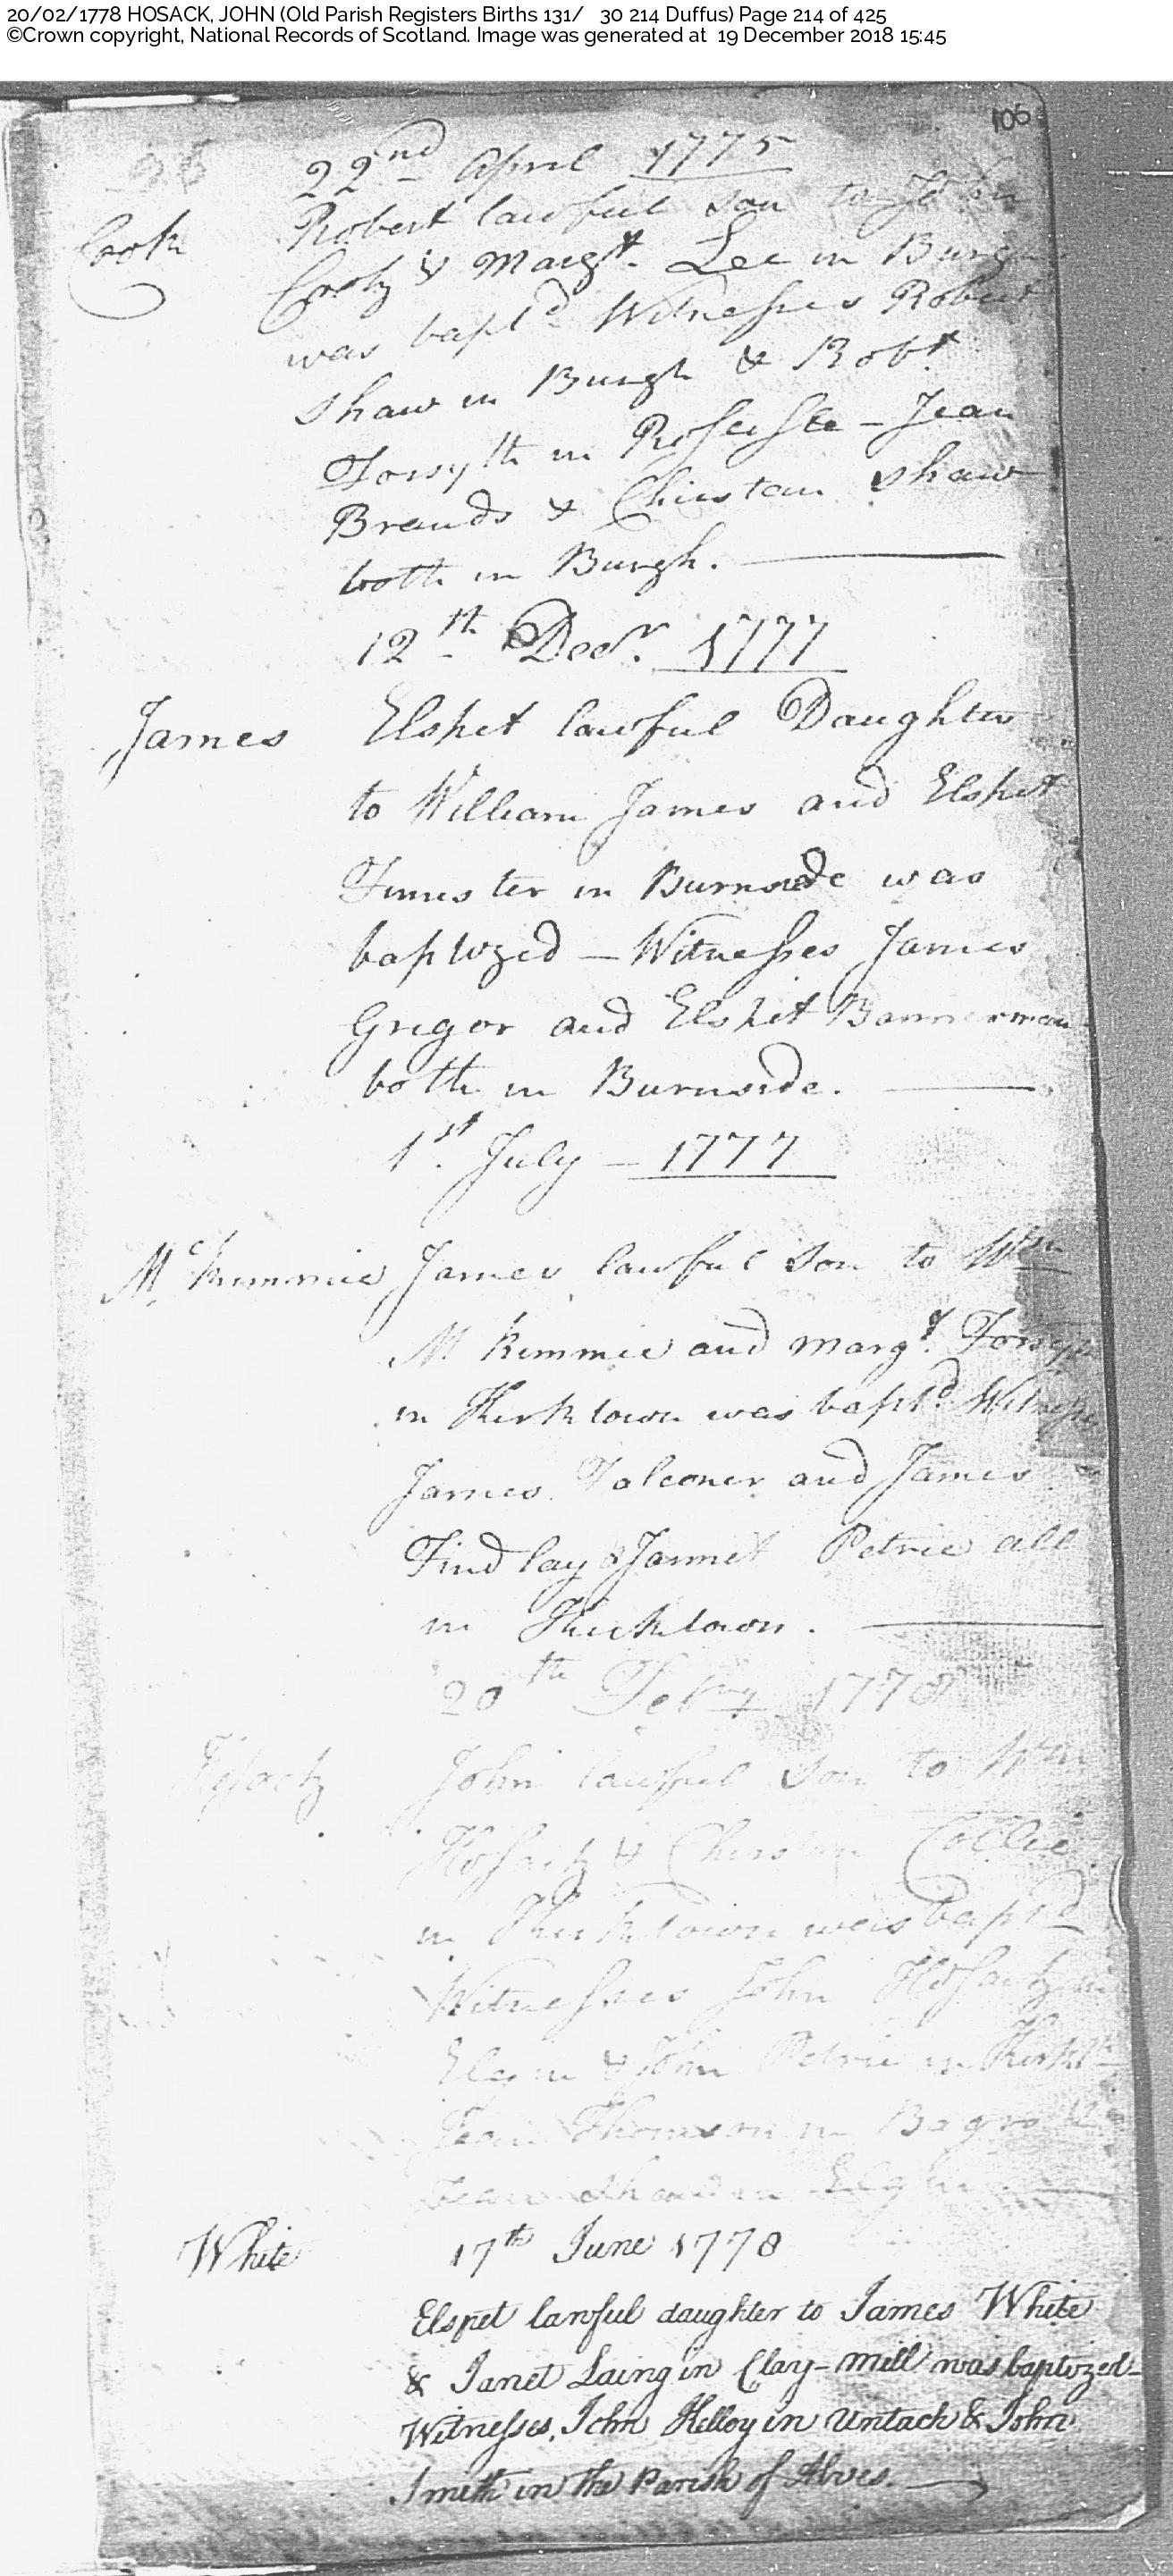 20/02/1778 HOSACK, JOHN (Old Parish Registers Births 131/ 30 214 Duffus) Page 214 of 425
©Crown copyright, National Records of Scotland. Image was generated at 19 December 2018 15:45
106
22nd April 1775
Cook Robert lawful son to John
Cook & Margt. Lee in Burgh
was baptd. Witnesses Robert
Shaw in Burgh & Robt.
Forsyth in Roseisle - Jean
Brands & Chirstan Shaw
both in Burgh.
12th Decr. 1777
James Elspet lawful Daughter
to William James and Elspet
in Burnside was
baptized - Witnesses James
Grigor and Elspet Bannerman
both in Burnside.
1st. July - 1777
Mc kimmie James lawful Son to Wm
Mc kimmie and Margt. Forsyth
in Kirktown was baptd. Witnesses
James Falconer and James
Findlay & Jannet Petrie all
in Kirktown.
20th Febry 1778
Hosack John lawful Son to Wm
Hosack & Chirstan Collie
in Kirktown was baptd
Witnesses John Hosack in
Elgin & John Petrie in Kirkt
Jean Thomson in
Jean Elgin
White 17th June 1778
Elspet lawful daughter to James White
& Janet Laing in Clay-mill was baptized-
Witnesses, John Kelloy in Untach & John
Smith in the Parish of Alves.